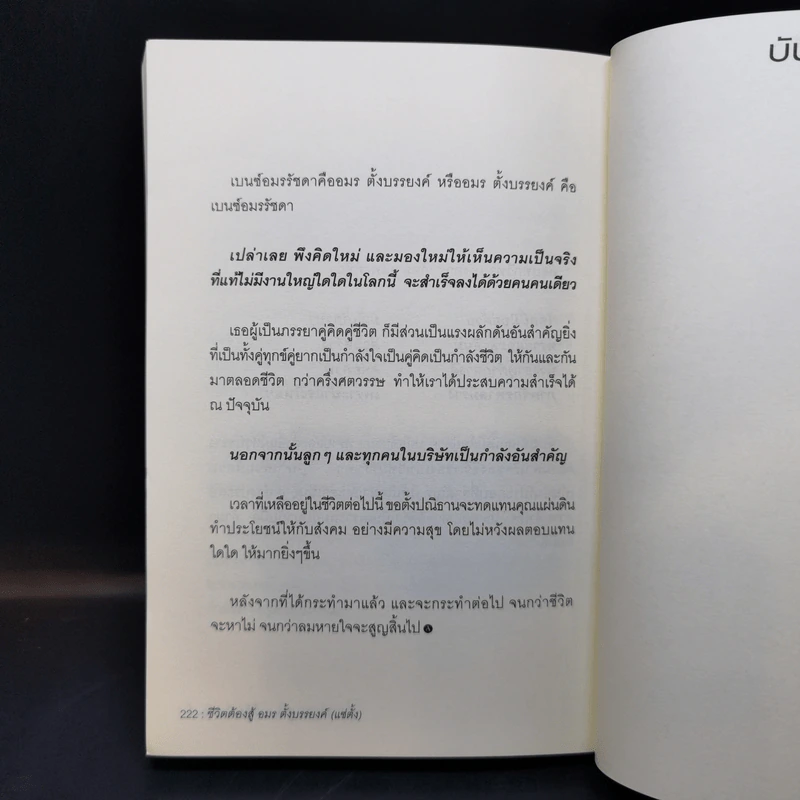 เบนซ์อมรรัชดาคืออมร ตั้งบรรยงค์ หรืออมร ตั้งบรรยงค์ คือ
เบนซ์อมรรัชดา
เปล่าเลย พึงคิดใหม่ และมองใหม่ให้เห็นความเป็นจริง
ที่แท้ไม่มีงานใหญ่ใดใดในโลกนี้ จะสำเร็จลงได้ด้วยคนคนเดียว
เธอผู้เป็นภรรยาคู่คิดคู่ชีวิต ก็มีส่วนเป็นแรงผลักดันอันสำคัญยิ่ง
ที่เป็นทั้งคู่ทุกข์คู่ยากเป็นกำลังใจเป็นคู่คิดเป็นกำลังชีวิต ให้กันและกัน
มาตลอดชีวิต กว่าครึ่งศตวรรษ ทำให้เราได้ประสบความสำเร็จได้
ณ ปัจจุบัน
นอกจากนั้นลูกๆ และทุกคนในบริษัทเป็นกำลังอันสำคัญ
เวลาที่เหลืออยู่ในชีวิตต่อไปนี้ ขอตั้งปณิธานจะทดแทนคุณแผ่นดิน
ทำประโยชน์ให้กับสังคม อย่างมีความสุข โดยไม่หวังผลตอบแทน
ใดใด ให้มากยิ่งๆขึ้น
หลังจากที่ได้กระทำมาแล้ว และจะกระทำต่อไป จนกว่าชีวิต
จะหาไม่ จนกว่าลมหายใจจะสูญสิ้นไป
222 : ชีวิตต้องสู้ อมร ตั้งบรรยงค์ (แซ่ตั้ง)